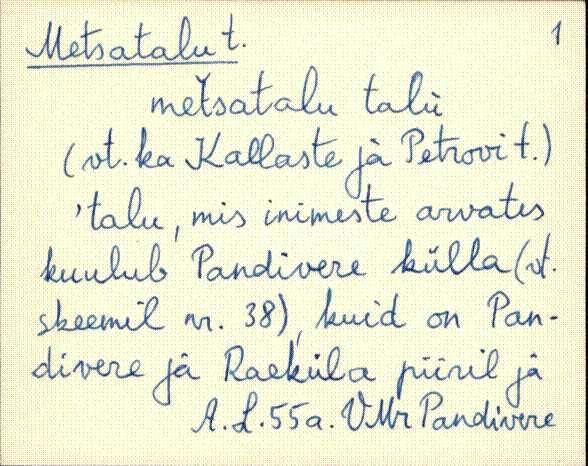 Metsatalu t. 1
metšatalu talu̇̄
(vt. ka Kallaste jā Petrovi t.)
'talu, mis inimeste arvates
kuulub Pandivere külla (vt.
skeemil nr. 38), kuid on Pan-
divere jā Raeküla piiril jā
A. L. 55a. VMr Pandivere